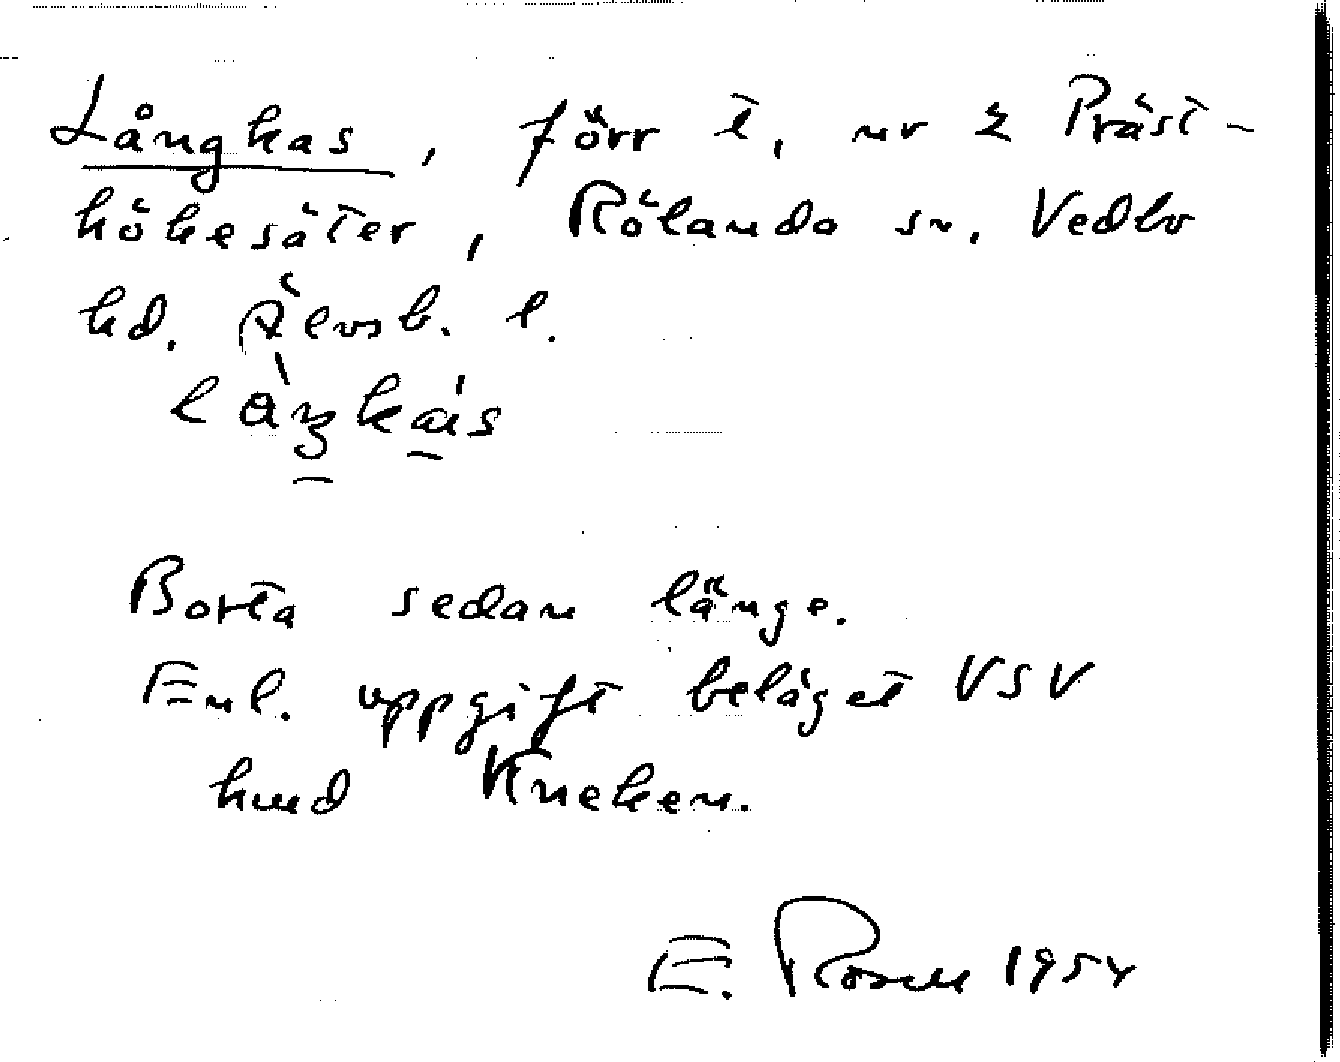 Långkas, förr t, nr 2 Präst-
hökesäter, Rölanda sn. Vedbo
hd. Älvsb. l.
Borta sedan länge.
Enl. uppgift beläget VSV
Kneken.
E. Rosell 1954